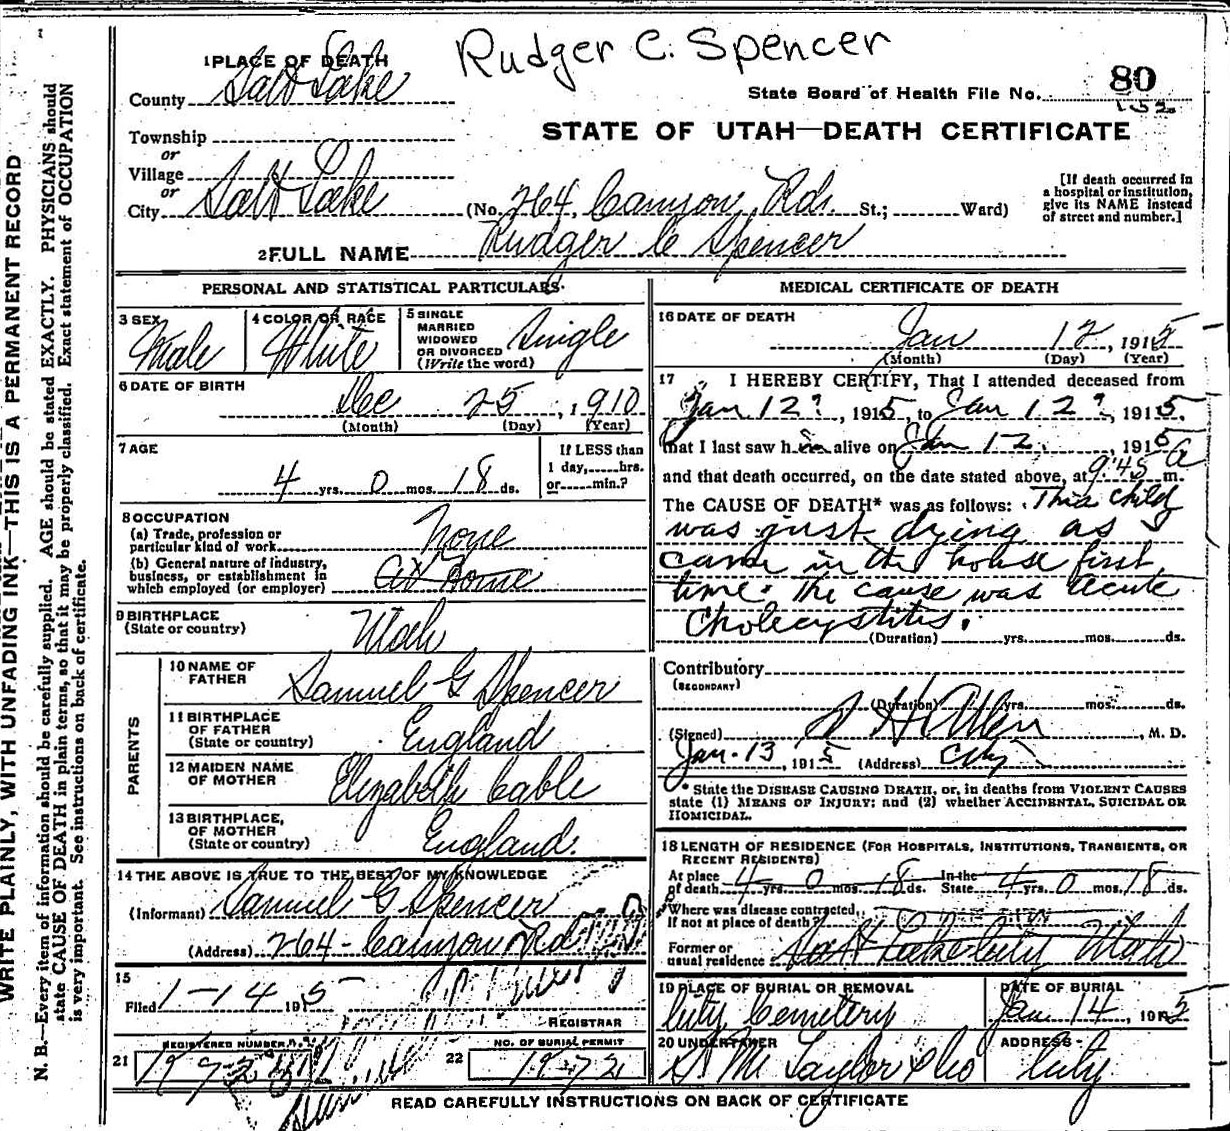 Rudger C. Spencer
1 PLACE OF DEATH
County Salt Lake
State Board of Health File No. 80
STATE OF UTAH—DEATH CERTIFICATE
Township
or
Village
or
City Salt Lake (No. 264 Canyon Rd. St.; Ward)
[If death occurred in
a hospital or institution,
give its NAME instead
of street and number.]
2 FULL NAME Rudger C Spencer
PERSONAL AND STATISTICAL PARTICULARS
3 SEX Male
4 COLOR OR RACE White
5 SINGLE
MARRIED
WIDOWED
OR DIVORCED
(Write the word) Single
6 DATE OF BIRTH
Dec 25, 1910
(Month) (Day) (Year)
7 AGE
4 yrs. 0 mos. 18 ds.
If LESS than
1 day, hrs.
or min.?
8 OCCUPATION
(a) Trade, profession or
particular kind of work None
(b) General nature of industry,
business, or establishment in
which employed (or employer) At Home
9 BIRTHPLACE
(State or country) Utah
PARENTS
10 NAME OF
FATHER Samuel G Spencer
11 BIRTHPLACE
OF FATHER
(State or country) England
12 MAIDEN NAME
OF MOTHER Elizabeth Cable
13 BIRTHPLACE,
OF MOTHER
(State or country) England.
14 THE ABOVE IS TRUE TO THE BEST OF MY KNOWLEDGE
(Informant) Samuel G Spencer
(Address) 264 - Canyon Rd
15
Filed 1-14 1915
REGISTRAR
21 REGISTERED NUMBER
22 NO. OF BURIAL PERMIT
1972
MEDICAL CERTIFICATE OF DEATH
16 DATE OF DEATH
Jan 12, 1915
(Month) (Day) (Year)
17 I HEREBY CERTIFY, That I attended deceased from
Jan 12, 1915, to Jan 12, 1915,
that I last saw him alive on Jan 12, 1915
and that death occurred, on the date stated above, at 9:45 a m.
The CAUSE OF DEATH* was as follows: This child
was just dying as I
came in the house first
time. The cause was acute
Cholecystitis.
(Duration) yrs. mos. ds.
Contributory
(SECONDARY)
(Duration) yrs. mos. ds.
(Signed) Allen, M. D.
Jan. 13, 1915 (Address) City
* State the DISEASE CAUSING DEATH, or, in deaths from VIOLENT CAUSES
state (1) MEANS OF INJURY; and (2) whether ACCIDENTAL, SUICIDAL OR
HOMICIDAL.
18 LENGTH OF RESIDENCE (FOR HOSPITALS, INSTITUTIONS, TRANSIENTS, OR
RECENT RESIDENTS)
At place
of death 4 yrs. 0 mos. 18 ds. In the
State 4 yrs. 0 mos. 18 ds.
Where was disease contracted,
If not at place of death?
Former or
usual residence Salt Lake City Utah
19 PLACE OF BURIAL OR REMOVAL
City Cemetery
DATE OF BURIAL
Jan 14, 1915
20 UNDERTAKER
S M Taylor & Co
ADDRESS
City
READ CAREFULLY INSTRUCTIONS ON BACK OF CERTIFICATE
WRITE PLAINLY, WITH UNFADING INK—THIS IS A PERMANENT RECORD
N. B.—Every item of information should be carefully supplied. AGE should be stated EXACTLY. PHYSICIANS should
state CAUSE OF DEATH in plain terms, so that it may be properly classified. Exact statement of OCCUPATION
is very important. See instructions on back of certificate.